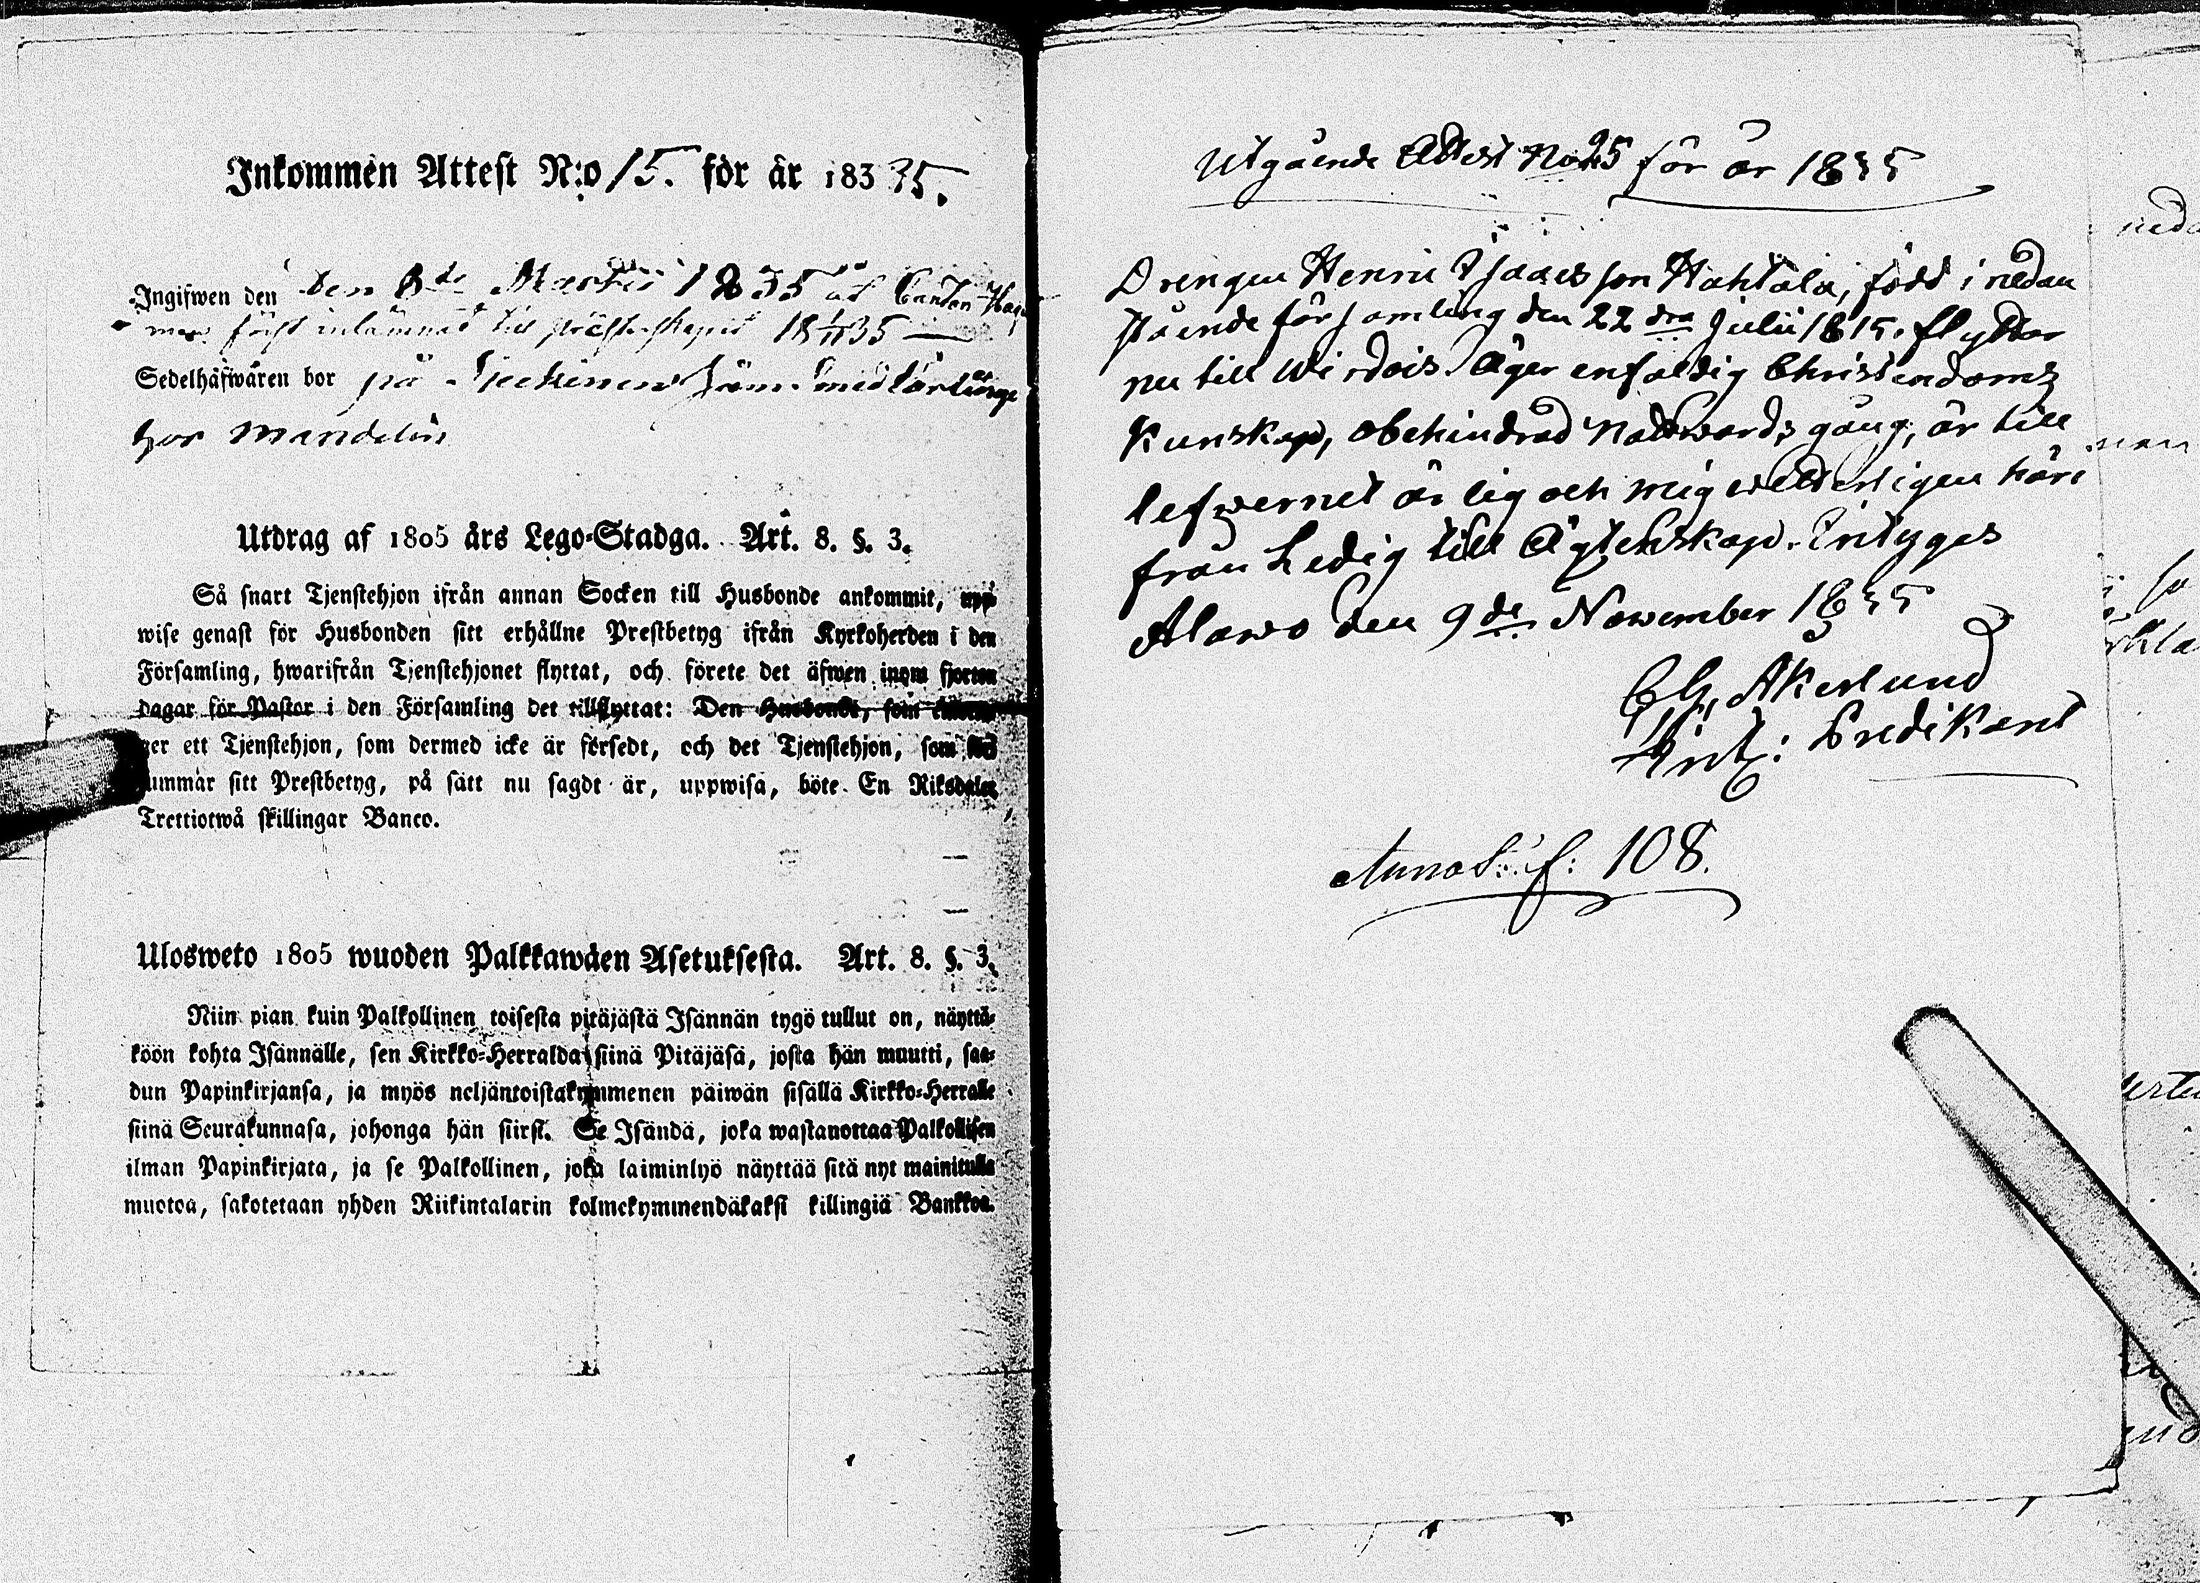 Inkommen Attest N:o 15. för år 183 35.
Ingifwen den den 8de Martii 1835 af Cantor
först inlämnad till 18 1/11 35 —
Sedelhafwaren bor på
hos Mandelin
Utdrag af 1805 års Lego-Stadga. Art. 8. §. 3.
Så snart Tjenstehjon ifrån annan Socken till Husbonde ankommit, upp-
wise genast för Husbonden sitt erhållne Prestbetyg ifrån Kyrkoherden i den
Församling, hwarifrån Tjenstehjonet flyttat, och förete det äfwen inom fjorton
dagar för Pastor i den Församling det tillflyttat: Den Husbonde, som
ger ett Tjenstehjon, som dermed icke är försedt, och det Tjenstehjon, som
summar sitt Prestbetyg, på sätt nu sagdt är, uppwisa, böte En Riksdaler
Trettiotwå skillingar Banco.
Ulosweto 1805 wuoden Palkkawäen Asetuksesta. Art. 8. §. 3.
Niin pian kuin Palkollinen toisesta pitäjästä Isännän tygö tullut on, näyttä-
köön kohta Isännälle, sen Kirkko-Herralda siinä Pitäjäsä, josta hän muutti, saa-
dun Papinkirjansa, ja myös neljäntoistakymmenen päiwän sisällä Kirkko-Herralle
siinä Seurakunnasa, johonga hän siirsi. Se Isändä, joka wastanottaa Palkollisen
ilman Papinkirjata, ja se Palkollinen, joka laiminlyö näyttää sitä nyt mainitulla
muotoa, sakotetaan yhden Riikintalarin kolmekymmendäkaksi killingiä Bankkoa.
Utgående Attest No 25 för år 1835
Drengen Henric Isaacsson Hahtala, född i nedan
stående församling den 22dra Julii 1815. flyttar
nu till Wirdois. Äger enfaldig Christendoms
Kunskap, obehindrad Nattwards gång, är till
lefwernet ärlig och mig wetterligen häri
från Ledig till Ägtenskap. Intygas
Alawo den 9de November 1835
Ch, Åkerlund
Predikant
Anno S: f: 108.